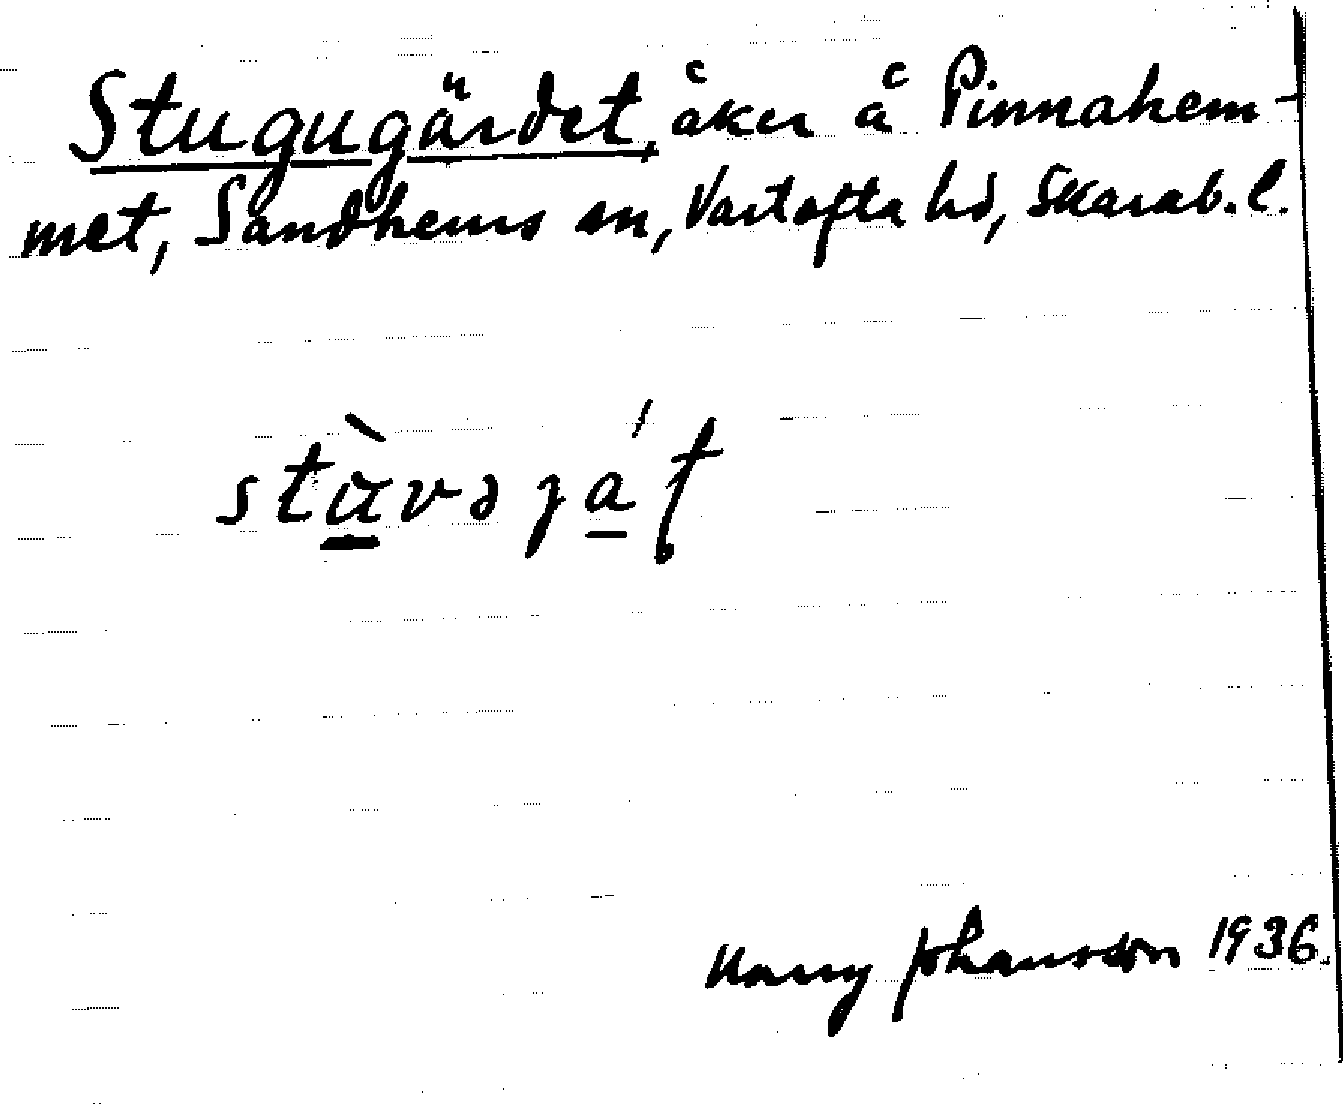 Stugugärdet, åker å Pinnahem-
met, Sandhems sn, Vartofta hd, Skarab. l.
stàvəját
Harry Johansson 1936.